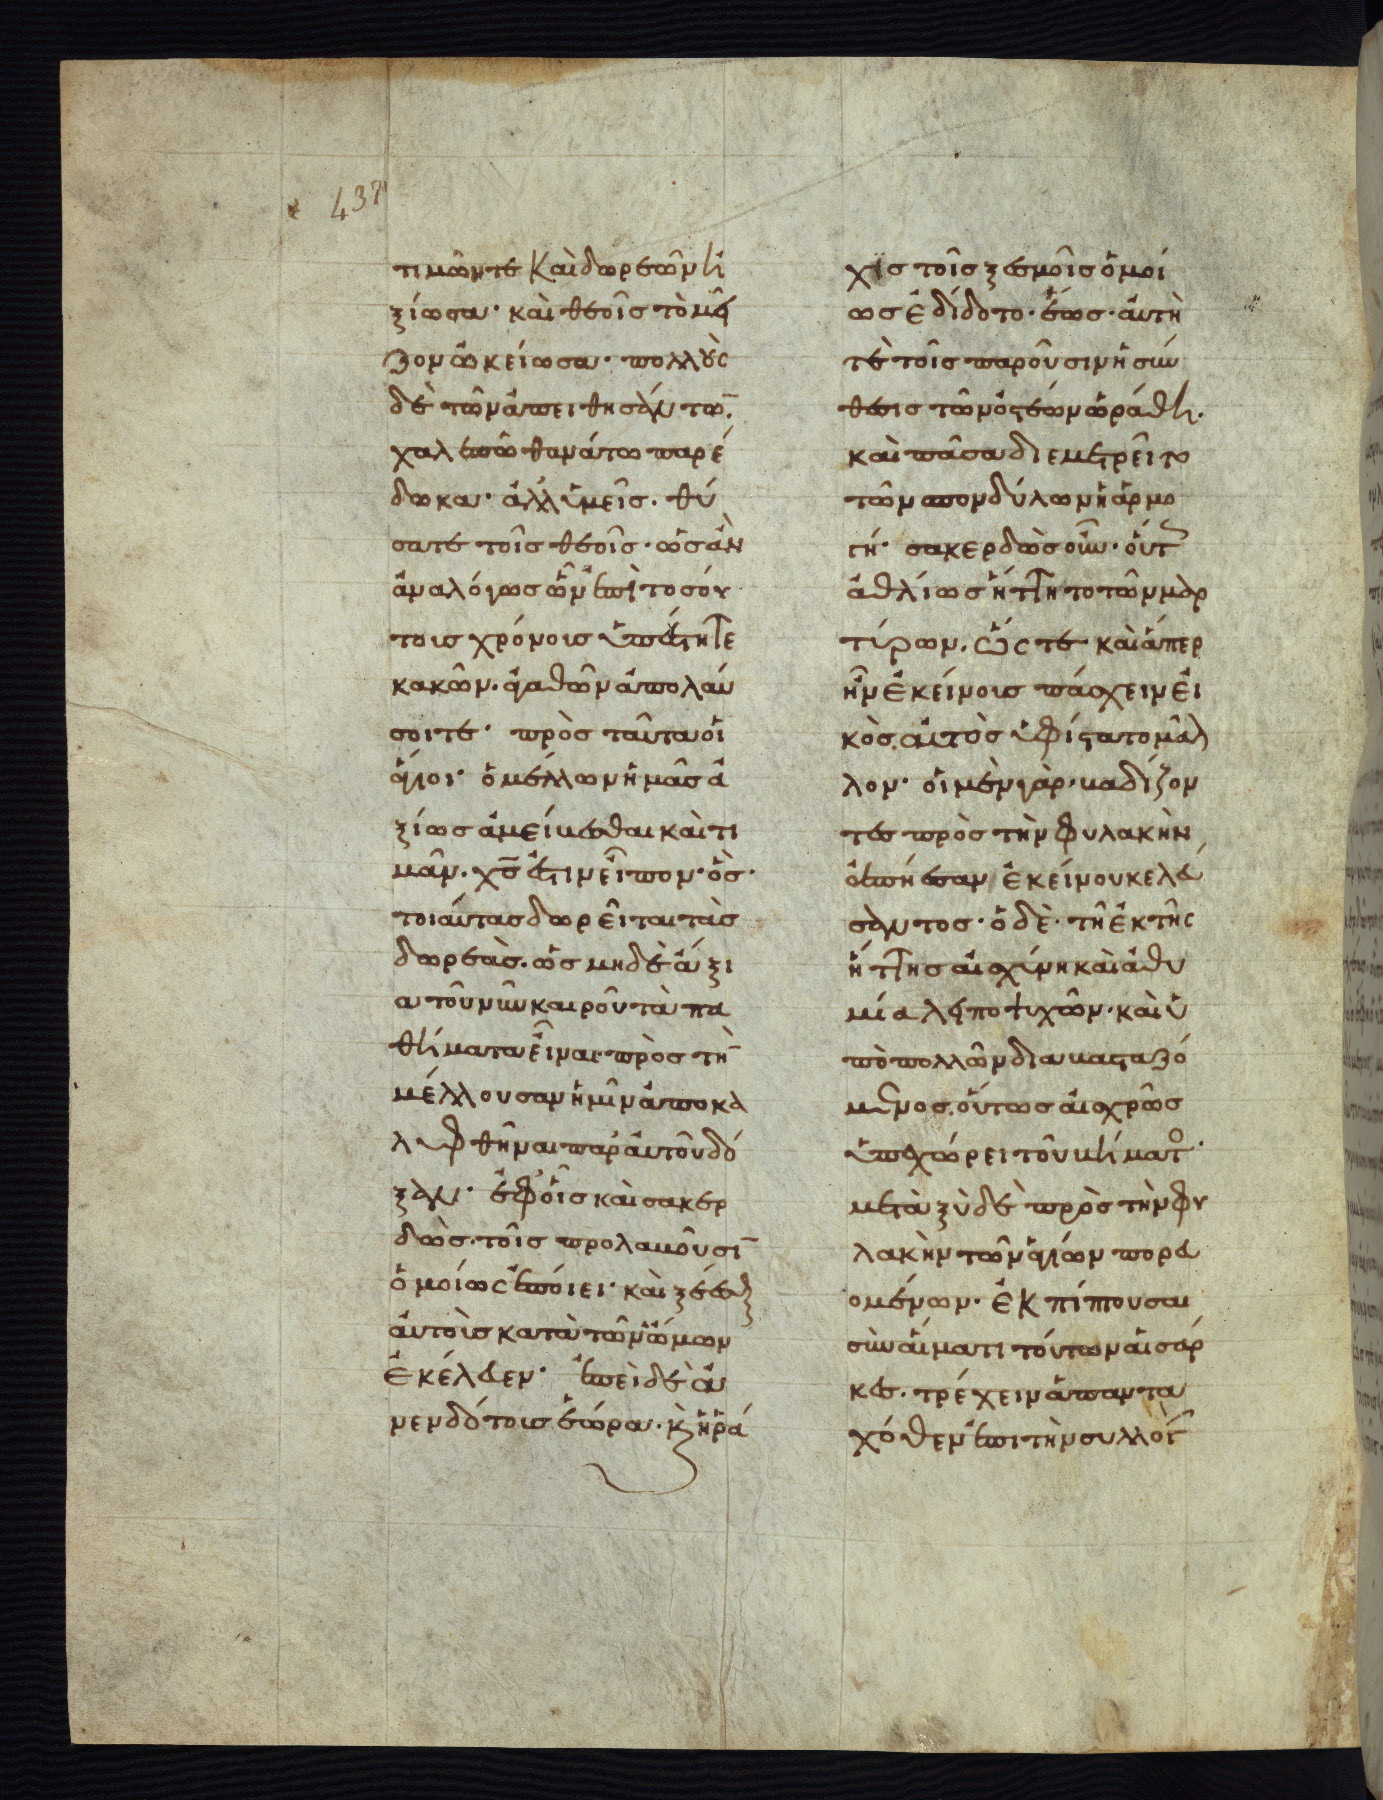 437
τιμῶντε καὶ δωρεῶν ἠ
ξίωσα· καὶ θεοῖς τὸ μεῖ
ζον ὠκείωσα· πολλοὺς
δὲ τῶν ἀπειθησάντων
χαλεπῶ θανάτω παρέ
δωκα· ἀλλ' ὑμεῖς· θύ
σατε τοῖς θεοῖς· ὡς ἂν
ἀναλόγως ὧν ἐπὶ τοσού
τοις χρόνοις ὑπέστητε
κακῶν· ἀγαθῶν ἀπολαύ
σοιτε· πρὸς ταῦτα οἱ
ἅγιοι· ὁ μέλλων ἡμᾶς ἀ
ξίως ἀμείψεσθαι καὶ τι
μᾶν· χς ἐστιν εἶπον· ὃς
τοιαύτας δωρεῖται τὰς
δωρεὰς· ὡς μηδὲ ἄξι
α τοῦ νῦν καιροῦ τὰ πα
θήματα εἶναι πρὸς τὴν
μέλλουσαν ἡμῖν ἀποκα
λυφθῆναι παρ' αὐτοῦ δό
ξαν· ἐφ' οἷς καὶ σακερ
δὼς· τοῖς προλαβοῦσιν
ὁμοίως ἐποίει· καὶ ξέεσθαι
αὐτοὺς κατὰ τῶν ὤμων
ἐκέλευεν· ἐπεὶ δὲ ἀ
νενδότοις ἑώρα· καὶ ἡ ῥά
χις τοῖς ξεσμοῖς ὁμοί
ως ἐδίδοτο· ἕως· αὐτὴ
τὲ τοῖς παροῦσιν ἡ σύν
θεσις τῶν ὀστέων ὡράθη·
καὶ πᾶσα διεμετρεῖτο
τῶν σπονδύλων ἡ ἁρμο
γή· σακερδὼς οὖν· οὕτως
ἀθλίως ἥττητο τῶν μαρ
τύρων· ὥς τε καὶ ἅπερ
ἦν ἐκείνοις πάσχειν εἰ
κὸς, αὐτὸς ὑφίστατο μᾶλ
λον· οἱ μὲν γὰρ· βαδίζον
τες πρὸς τὴν φυλακὴν
ἀπήεσαν ἐκείνου κελεύ
σαντος· ὁ δὲ· τῆ ἐκ τῆς
ἥττης αἰσχύνη καὶ ἀθυ
μία λειποψυχῶν· καὶ ὑ
πὸ πολλῶν διαβασταζό
μενος, οὕτως αἰσχρῶς
ὑπεχώρει τοῦ βήματος·
μεταξὺ δὲ πρὸς τὴν φυ
λακὴν τῶν ἁγίων πορευ
ομένων· ἐκπίπτουσαι
σὺν αἵματι τούτων αἱ σάρ
κες· τρέχειν ἁπαντα
χόθεν ἐπι τὴν συλλογὴν